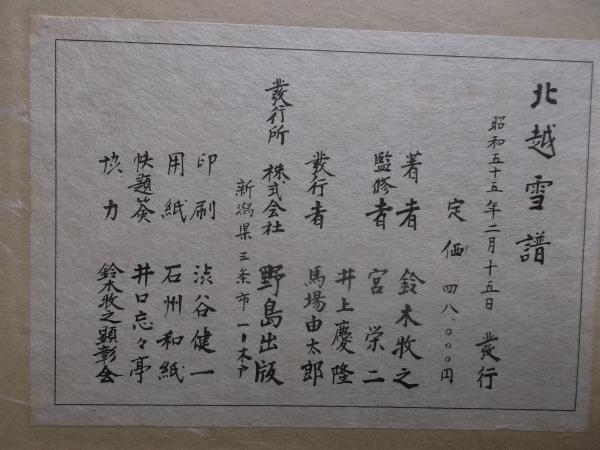 北越雪譜
昭和五十五年二月十五日 發行
定価 四八、〇〇〇円
著者 鈴木牧之
監修者 宮栄二
井上慶隆
發行者 馬場由太郎
發行所 株式会社 野島出版
新潟県三条市一ノ木戸
印刷 渋谷健一
用紙 石州和紙
帙題簽 井口忘々亭
協力 鈴木牧之顕彰会